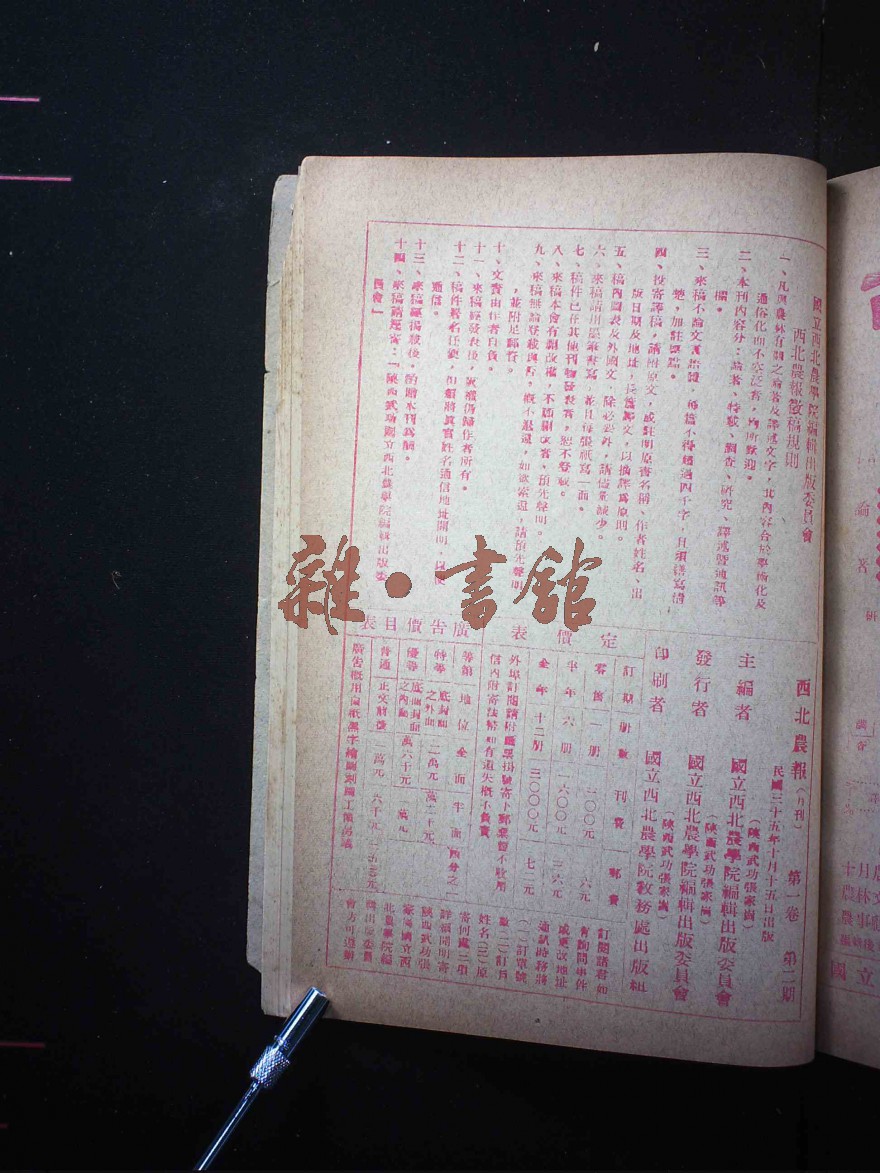 國立西北農學院編輯出版委員會
西北農報徵稿規則
一、凡與農林有關之論著及譯述文字，其內容合於學術化及
通俗化而不空泛者，均所歡迎。
二、本刊內容分：論著、特載、調查、研究、譯述暨通訊等
欄。
三、來稿不論文言語體，每篇不得超過四千字，且須繕寫清
楚，加註標點。
四、投寄譯稿，請附原文，或註明原書名稱、作者姓名、出
版日期及地址，長篇譯文，以摘譯為原則。
五、稿內圖表及外國文，除必要外，請儘量減少。
六、來稿請用墨筆書寫，並且每張紙寫一面。
七、稿件已在其他刊物發表者，恕不登載。
八、來稿本會有刪改權，不願刪改者、預先聲明。
九、來稿無論登載與否，概不退還，如欲索還，請預先聲明
，並附足郵資。
十、文責由作者自負。
十一、來稿經發表後，版權仍歸作者所有。
十二、稿件署名任便，但須將真實姓名通信地址開明，以便
通信。
十三、來稿經揭載後，酌贈本刊為酬。
十四、來稿請逕寄：「陝西武功國立西北農學院編輯出版委
員會」
西北農報（月刊） 第一卷 第二期
民國三十五年十月十五日出版
（陝西武功張家崗）
主編者 國立西北農學院編輯出版委員會
（陝西武功張家崗）
發行者 國立西北農學院編輯出版委員會
（陝西武功張家崗）
印刷者 國立西北農學院教務處出版組
定價表
訂期 冊數 刊費 郵費
零售 一冊 三〇〇元 六元
半年 六冊 一六〇〇元 三六元
全年 十二冊 三〇〇〇元 七二元
外埠訂閱請附匯票掛號寄下郵票暫不收用
信內附寄法幣如有遺失概不負責
訂閱諸君如
有詢問事件
或更改地址
通訊時務將
（一）訂單號
數（二）訂戶
姓名（三）原
寄何處三項
詳細開明寄
陝西武功張
家崗國立西
北農學院編
輯出版委員
會方可遵辦
廣告價目表
等類 地位 全面 半面 四分之一
特等 底封面之外面 二萬元
優等 底面封面之內面 一萬六千元 一萬元
普通 正文前後 一萬元 六千元
廣告概用白紙黑字繪圖刻圖工價另議
雜·書館
論著
研
調查
國立